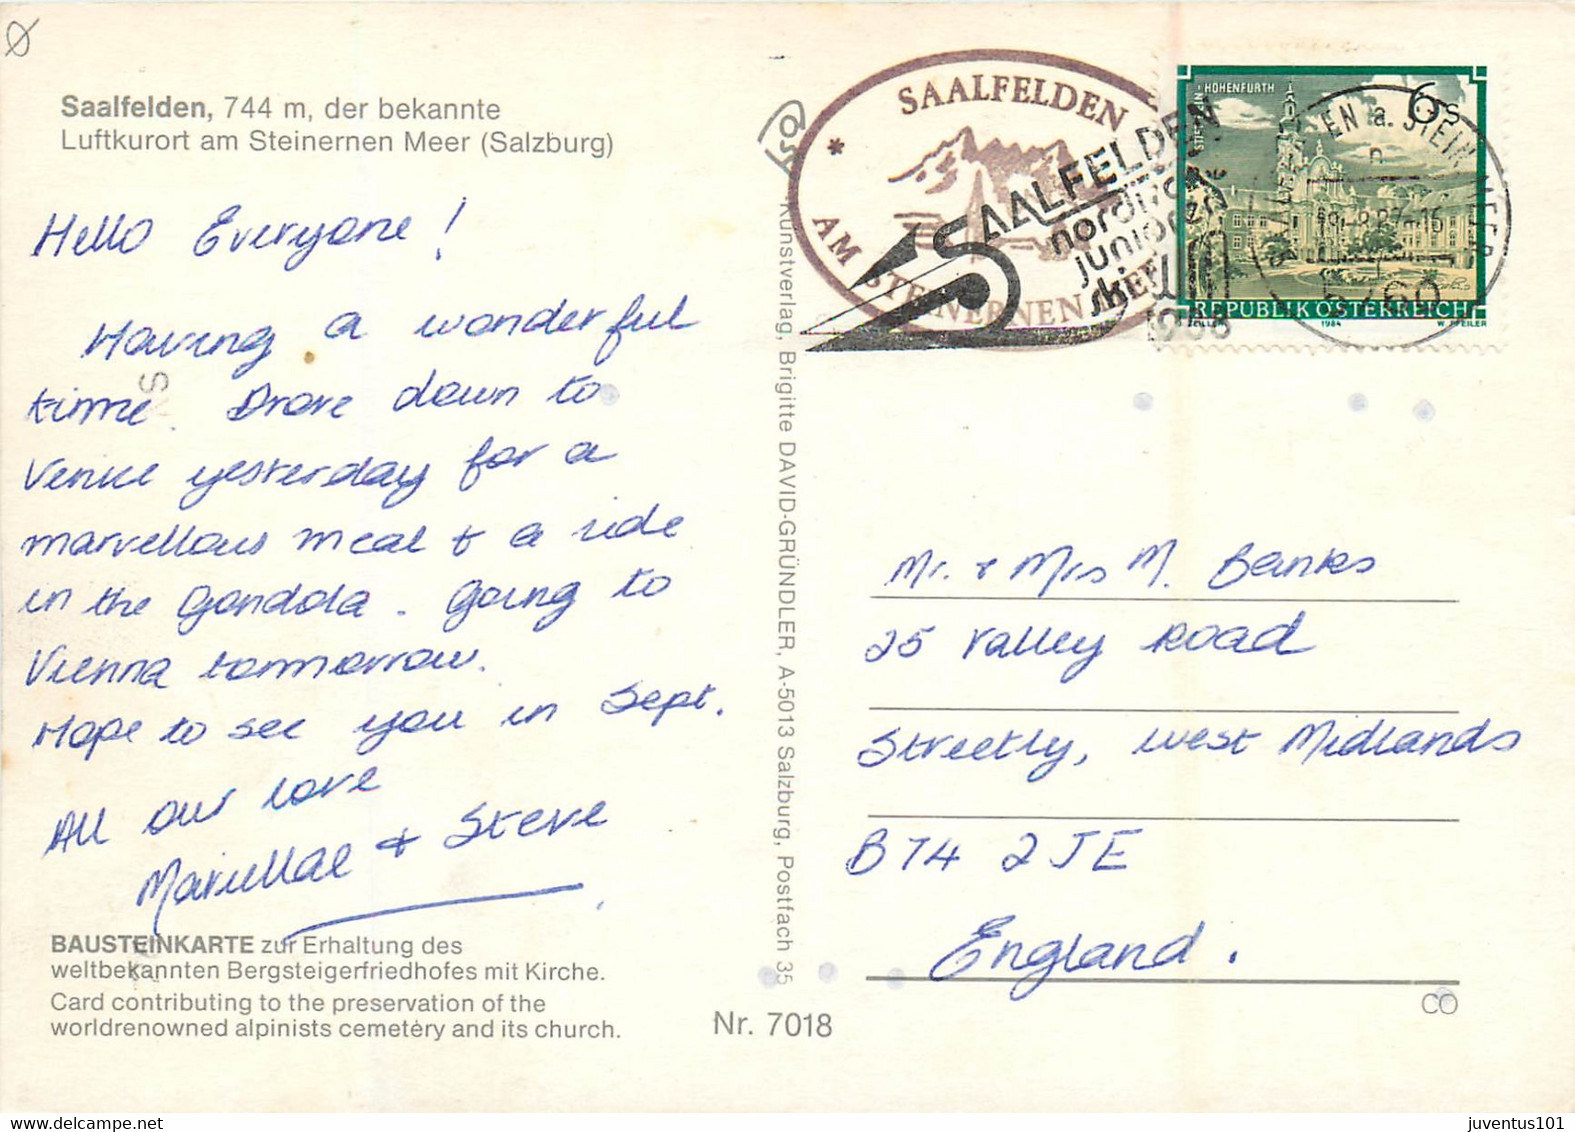 Saalfelden, 744 m, der bekannte
Luftkurort am Steinernen Meer (Salzburg)
Hello Everyone!
Having a wonderful
time. Drove down to
Venice yesterday for a
marvellous meal & a ride
in the Gondola. Going to
Vienna tommorrow.
Hope to see you in Sept.
All our love
& Steve
BAUSTEINKARTE zur Erhaltung des
weltbekannten Bergsteigerfriedhofes mit Kirche.
Card contributing to the preservation of the
worldrenowned alpinists cemetéry and its church.
Nr. 7018
Kunstverlag, Brigitte DAVID-GRÜNDLER, A-5013 Salzburg, Postfach 35
SAALFELDEN
AM STEINERNEN
SAALFELDEN
nordische
junioren
ski
1988
STIFT REIN-HOHENFURTH
6s
REPUBLIK ÖSTERREICH
ZEILLER 1984 W. PFEILER
5760
Mr. & Mrs M. Banks
25 Valley Road
Streetly, West Midlands
B74 2JE
England.
CO
juventus101